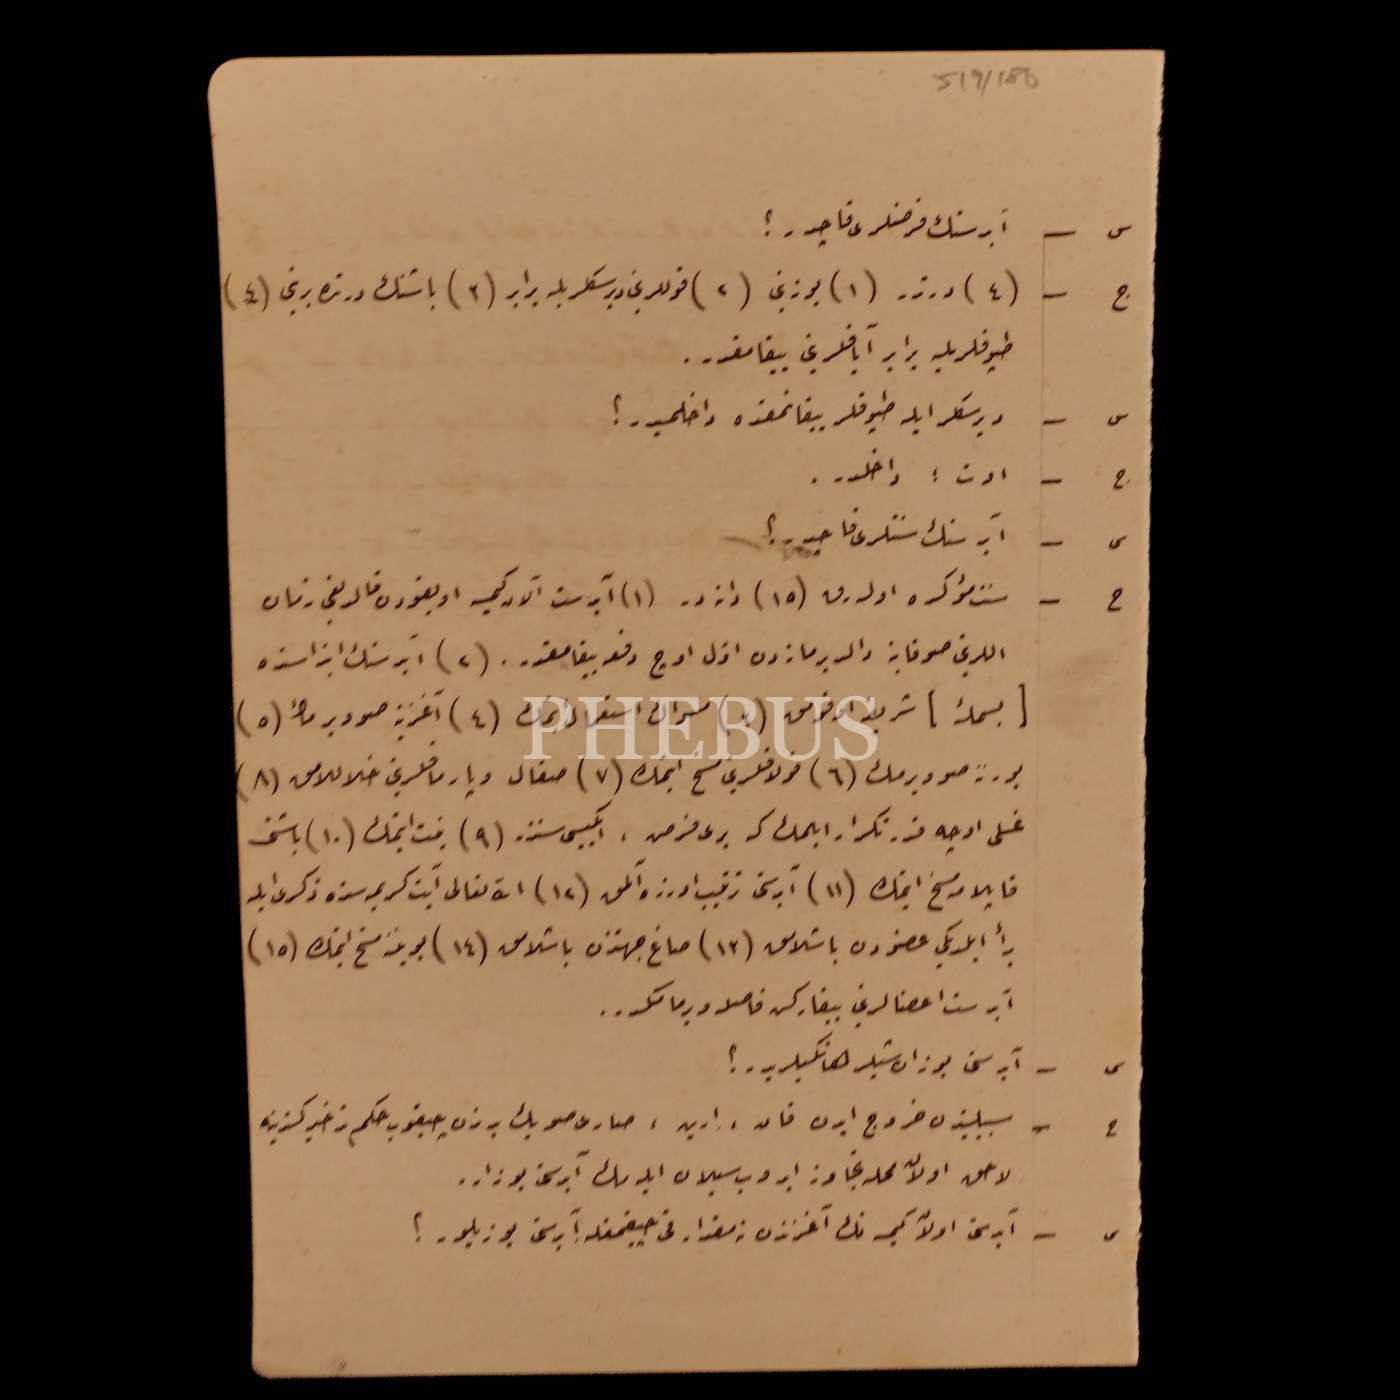 519/186
س — آبدستك فرضلرى قاچدر؟
ج — (٤) درتدر (١) يوزينى (٢) قوللرينى ديرسكلريله برابر (٣) باشنك درتده برينى (٤)
طپوقلريله برابر آياقلرينى ييقامقدر.
س — ديرسكلر ايله طپوقلر ييقانمقده داخلميدر؟
ج — اوت ؛ داخلدر.
س — آبدستك سنتلرى قاچدر؟
ج — سنت مؤكده اولهرق (١٥) دانهدر (١) آبدست آلان كيمسه اويقودن قالديغى زمان
اللرينى صو قابنه دالديرمازدن اول اوچ دفعه ييقامقدر. (٢) آبدستك ابتداسنده
[بسملهٔ] شريف اوقومق (٣) مسواك استعمال ايتمك (٤) آغزينه صو ويرمك (٥)
بورننه صو ويرمك (٦) قولاقلرينى مسح ايتمك (٧) صقال و پارماقلرينى خلاللامق (٨)
غسلى اوچه قدر تكرار ايلمك كه برى فرض ، ايكيسى سنتدر (٩) نيت ايتمك (١٠) باشنى
قاپلايه مسح ايتمك (١١) آبدستى ترتيب اوزره آلمق (١٢) الله تعالى آيت كريمهسنده ذكرى ايله
بدأ ايلديكى عضودن باشلامق (١٣) صاغ جهتدن باشلامق (١٤) بوينى مسح ايتمك (١٥)
آبدست اعضالرينى ييقاركن فاصله ويرمامكدر.
س — آبدستى بوزان شيلر هانكيلريدر؟
ج — سبيليندن خروج ايدن قان ، ايرين ، صارى صو يك بدندن چيقوب حكم تطهير كنديسنه
لاحق اولان محله تجاوز ايدوب سيلان ايلهمك آبدستى بوزار.
س — آبدستى اولان كيمسهنك آغزندن نه مقدار قى چيقمغله آبدستى بوزيلور؟
PHEBUS